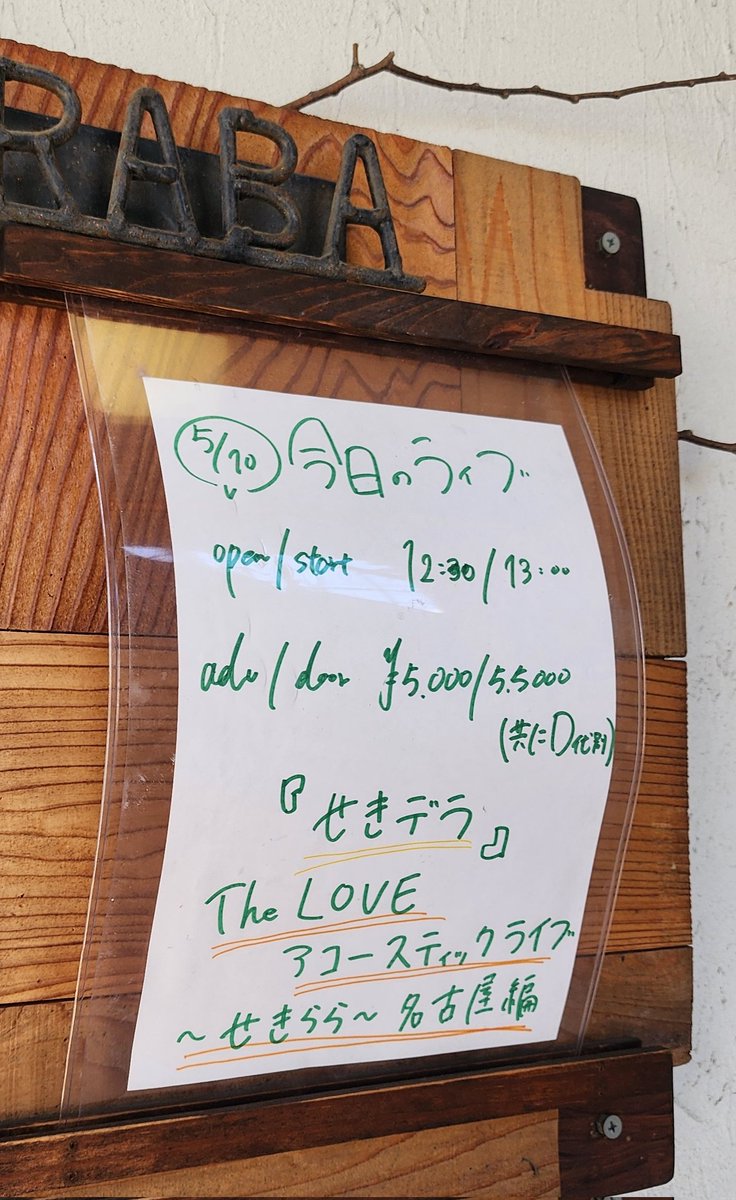 RABA
5/10 今日のライブ
open/start 12:30/13:00
adv/door ¥5.000/5.5000
(共にD代別)
『せきデラ』
The LOVE
アコースティックライブ
～せきらら～名古屋編